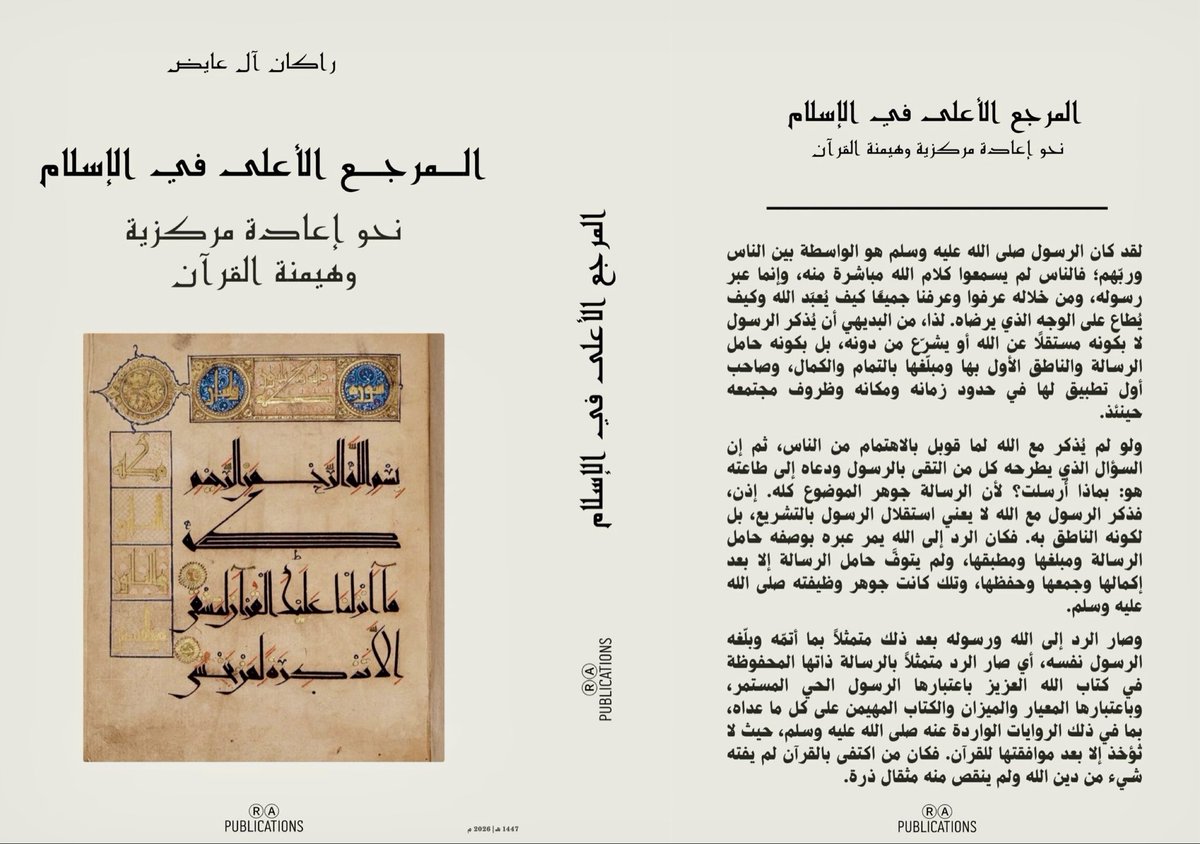 راكان آل عايض
المرجع الأعلى في الإسلام
نحو إعادة مركزية
وهيمنة القرآن
سورة
بسم الله الرحمن الرحيم
طه
ما أنزلنا عليك القرآن لتشقى
إلا تذكرة لمن يخشى
RA
PUBLICATIONS
1447 هـ | 2026 م
المرجع الأعلى في الإسلام
RA
PUBLICATIONS
المرجع الأعلى في الإسلام
نحو إعادة مركزية وهيمنة القرآن
لقد كان الرسول صلى الله عليه وسلم هو الواسطة بين الناس
وربّهم؛ فالناس لم يسمعوا كلام الله مباشرة منه، وإنما عبر
رسوله، ومن خلاله عرفوا وعرفنا جميعًا كيف يُعبَد الله وكيف
يُطاع على الوجه الذي يرضاه. لذا، من البديهي أن يُذكر الرسول
لا بكونه مستقلًا عن الله أو يشرّع من دونه، بل بكونه حامل
الرسالة والناطق الأول بها ومبلّغها بالتمام والكمال، وصاحب
أول تطبيق لها في حدود زمانه ومكانه وظروف مجتمعه
حينئذ.
ولو لم يُذكر مع الله لما قوبل بالاهتمام من الناس، ثم إن
السؤال الذي يطرحه كل من التقى بالرسول ودعاه إلى طاعته
هو: بماذا أُرسلت؟ لأن الرسالة جوهر الموضوع كله. إذن،
فذكر الرسول مع الله لا يعني استقلال الرسول بالتشريع، بل
لكونه الناطق به. فكان الرد إلى الله يمر عبره بوصفه حامل
الرسالة ومبلغها ومطبقها، ولم يتوفَّ حامل الرسالة إلا بعد
إكمالها وجمعها وحفظها، وتلك كانت جوهر وظيفته صلى الله
عليه وسلم.
وصار الرد إلى الله ورسوله بعد ذلك متمثلاً بما أتمّه وبلّغه
الرسول نفسه، أي صار الرد متمثلاً بالرسالة ذاتها المحفوظة
في كتاب الله العزيز باعتبارها الرسول الحي المستمر،
وباعتبارها المعيار والميزان والكتاب المهيمن على كل ما عداه،
بما في ذلك الروايات الواردة عنه صلى الله عليه وسلم، حيث لا
تُؤخذ إلا بعد موافقتها للقرآن. فكان من اكتفى بالقرآن لم يفته
شيء من دين الله ولم ينقص منه مثقال ذرة.
RA
PUBLICATIONS